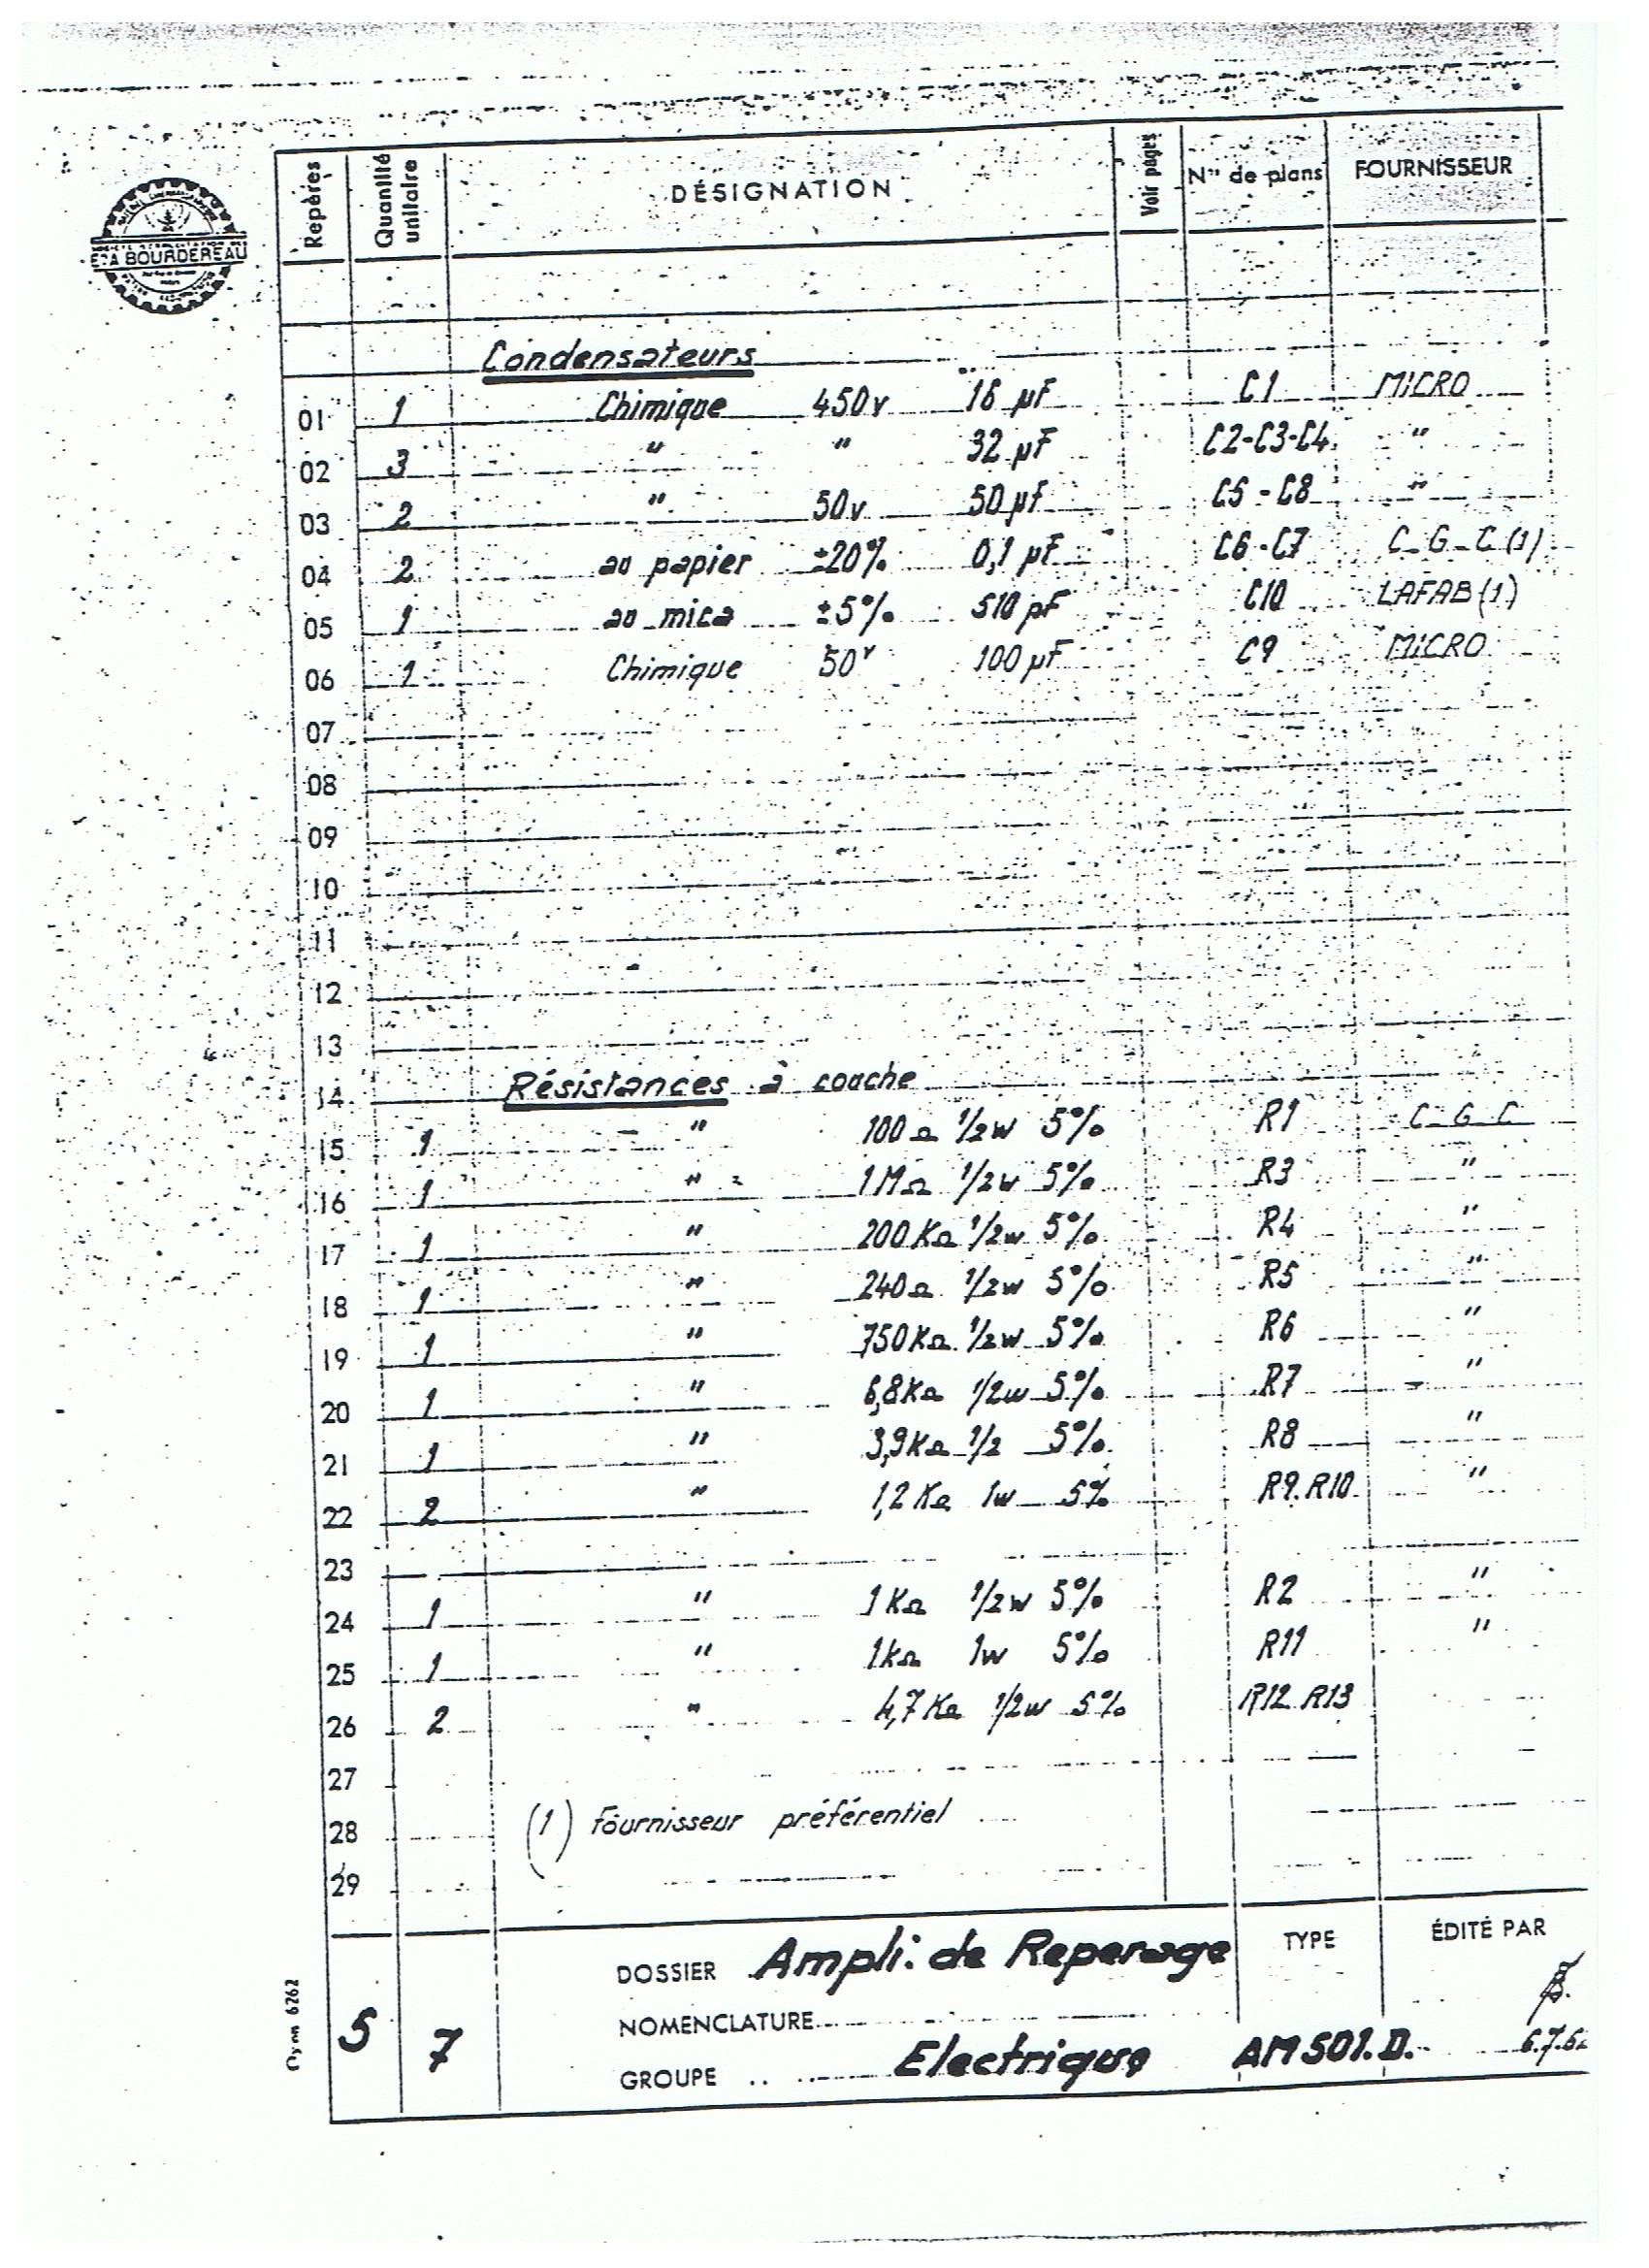 Repères Quantité unitaire DÉSIGNATION Voir pages Nos de plans FOURNISSEUR
BOURDEREAU
Condensateurs
01 1 Chimique 450v 16 µF C1 MICRO
02 3 " " 32 µF C2-C3-C4 "
03 2 " 50v 50 µF C5-C8 "
04 2 au papier ±20% 0,1 µF C6-C7 C-G-C (1)
05 1 au mica ±5% 510 pF C10 LAFAB (1)
06 1 Chimique 50v 100 µF C9 MICRO
07
08
09
10
11
12
13
14 Résistances à couche
15 1 " 100Ω 1/2w 5% R1 C-G-C
16 1 " 1MΩ 1/2w 5% R3 "
17 1 " 200KΩ 1/2w 5% R4 "
18 1 " 240Ω 1/2w 5% R5 "
19 1 " 750KΩ 1/2w 5% R6 "
20 1 " 6,8KΩ 1/2w 5% R7 "
21 1 " 3,9KΩ 1/2 5% R8 "
22 2 " 1,2KΩ 1w 5% R9.R10 "
23
24 1 " 1KΩ 1/2w 5% R2 "
25 1 " 1kΩ 1w 5% R11 "
26 2 " 4,7KΩ 1/2w 5% R12.R13
27
28 (1) Fournisseur préférentiel
29
DOSSIER Ampli. de Reperage TYPE ÉDITÉ PAR
5 7 NOMENCLATURE
GROUPE Electrique AM501.D. 6.7.62
6262